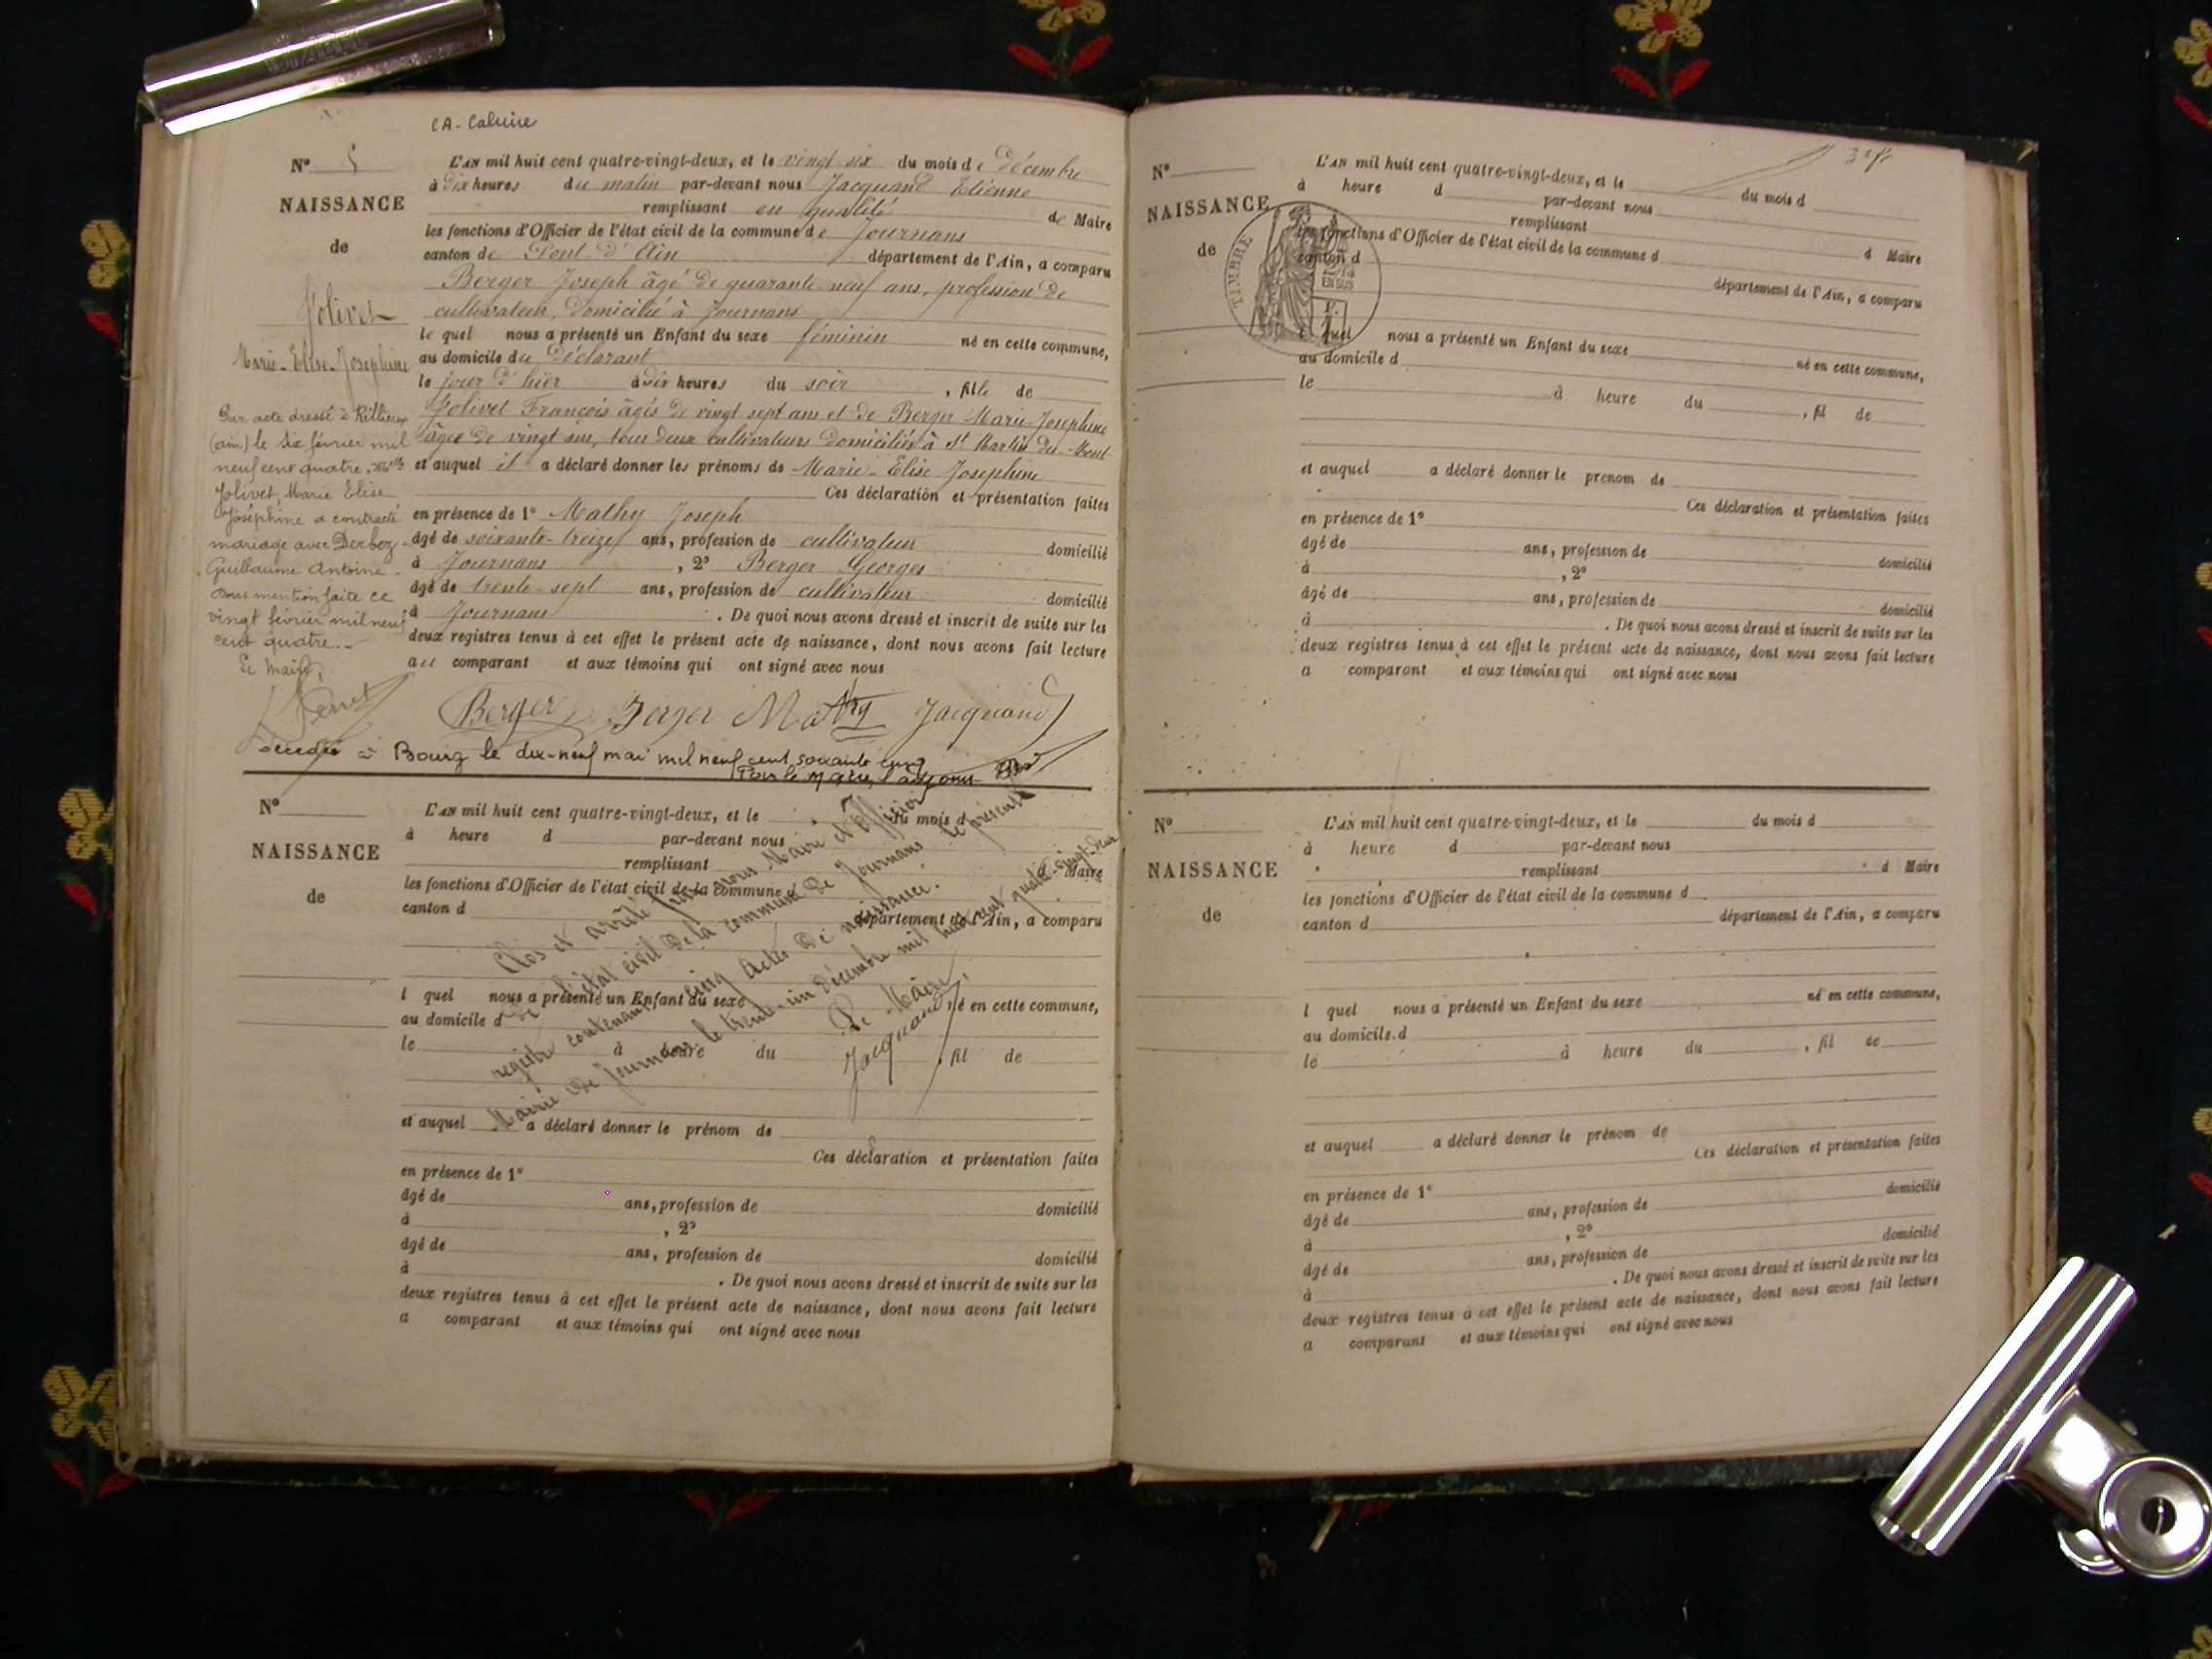 CA. Caluire
N° 5
NAISSANCE
de
Jolivet
Marie-Elise-Josephine
L'AN mil huit cent quatre-vingt-deux, et le vingt six du mois de décembre
à dix heures du matin par-devant nous Jacquand Etienne
remplissant en qualité de Maire
les fonctions d'Officier de l'état civil de la commune de Journans
canton de Pont d'Ain département de l'Ain, a comparu
Berger Joseph âgé de quarante neuf ans, profession de
cultivateur, domicilié à Journans
le quel nous a présenté un Enfant du sexe féminin né en cette commune,
au domicile du déclarant
le jour d'hier à dix heures du soir, fille de
Jolivet François âgés de vingt sept ans et de Berger Marie Josephine
âgée de vingt ans, tous deux cultivateurs domiciliés à St Martin du Mont
et auquel il a déclaré donner les prénoms de Marie-Elise Josephine
Ces déclaration et présentation faites
en présence de 1° Mathy Joseph
âgé de soixante-treize ans, profession de cultivateur domicilié
à Journans, 2° Berger Georges
âgé de trente-sept ans, profession de cultivateur domicilié
à Journans. De quoi nous avons dressé et inscrit de suite sur les
deux registres tenus à cet effet le présent acte de naissance, dont nous avons fait lecture
au comparant et aux témoins qui ont signé avec nous
Par acte dressé à Rillieux
(ain) le six février mil
neuf cent quatre,
Jolivet, Marie Elise
Joséphine a contracté
mariage avec Derboz
Guillaume Antoine.
Dont mention faite ce
vingt février mil neuf
cent quatre.
Le Maire,
Perret
Berger Berger Mathy Jacquand
décédée à Bourg le dix-neuf mai mil neuf cent soixante cinq
Pour le Maire, l'adjoint
N°
NAISSANCE
de
L'AN mil huit cent quatre-vingt-deux, et le du mois d
à heure d par-devant nous
remplissant d Maire
les fonctions d'Officier de l'état civil de la commune d
canton d département de l'Ain, a comparu
l quel nous a présenté un Enfant du sexe né en cette commune,
au domicile d
le à heure du , fil de
et auquel a déclaré donner le prénom de
Ces déclaration et présentation faites
en présence de 1°
âgé de ans, profession de domicilié
à , 2°
âgé de ans, profession de domicilié
à . De quoi nous avons dressé et inscrit de suite sur les
deux registres tenus à cet effet le présent acte de naissance, dont nous avons fait lecture
a comparant et aux témoins qui ont signé avec nous
Clos et arrêté par nous Maire et Officier
de l'état civil de la commune de Journans le présent
registre contenant cinq actes de naissance.
Mairie de Journans le trente-un décembre mil huit cent quatre-vingt-deux
Le Maire,
Jacquand
N°
NAISSANCE
de
TIMBRE
EN SUS
L'AN mil huit cent quatre-vingt-deux, et le du mois d
à heure d par-devant nous
remplissant d Maire
les fonctions d'Officier de l'état civil de la commune d
canton d département de l'Ain, a comparu
l quel nous a présenté un Enfant du sexe né en cette commune,
au domicile d
le à heure du , fil de
et auquel a déclaré donner le prenom de
Ces déclaration et présentation faites
en présence de 1°
âgé de ans, profession de domicilié
à , 2°
âgé de ans, profession de domicilié
à . De quoi nous avons dressé et inscrit de suite sur les
deux registres tenus à cet effet le présent acte de naissance, dont nous avons fait lecture
a comparant et aux témoins qui ont signé avec nous
N°
NAISSANCE
de
L'AN mil huit cent quatre-vingt-deux, et le du mois d
à heure d par-devant nous
remplissant d Maire
les fonctions d'Officier de l'état civil de la commune d
canton d département de l'Ain, a comparu
l quel nous a présenté un Enfant du sexe né en cette commune,
au domicile d
le à heure du , fil de
et auquel a déclaré donner le prénom de
Ces déclaration et présentation faites
en présence de 1°
âgé de ans, profession de domicilié
à , 2°
âgé de ans, profession de domicilié
à . De quoi nous avons dressé et inscrit de suite sur les
deux registres tenus à cet effet le présent acte de naissance, dont nous avons fait lecture
a comparant et aux témoins qui ont signé avec nous